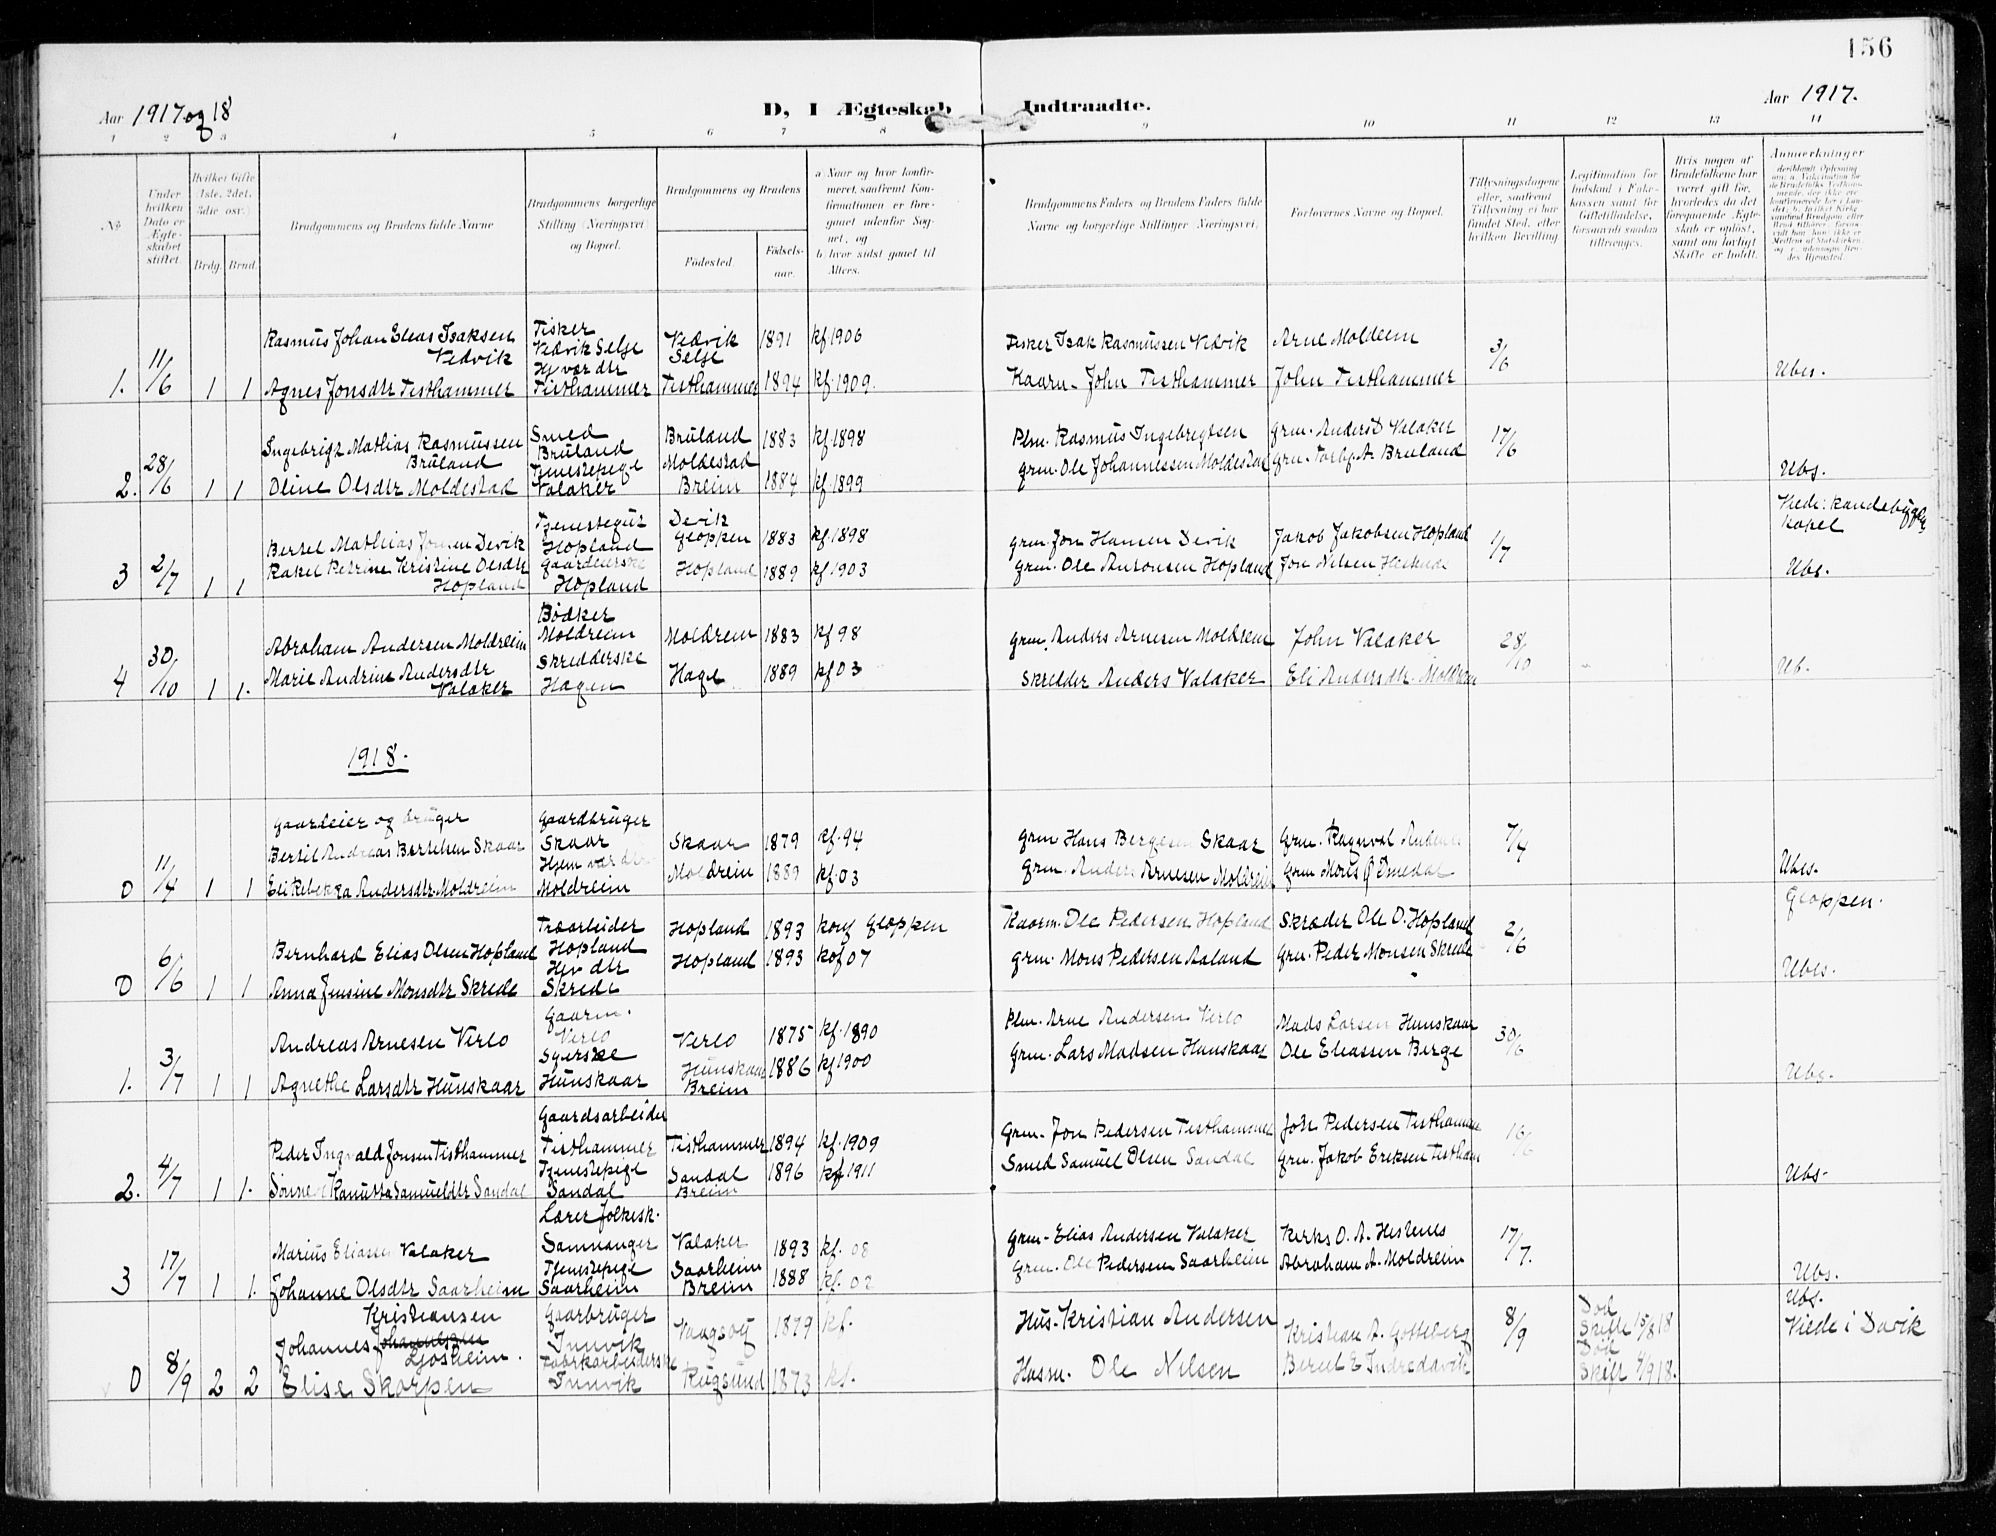 156
Aar 1917 og 18
D, I Ægteskab Indtraadte.
Aar 1917.
1 2 3 4 5 6 7 8 9 10 11 12 13 14
No
Under hvilken Dato er Ægteskabet stiftet.
Hvilket Gifte (1ste, 2det, 3die osv.)
Brdg. Brud.
Brudgommens og Brudens fulde Navne
Brudgommens borgerlige Stilling (Næringsvei) og Bopæl.
Brudgommens og Brudens
Fødested. Fødselsaar.
a. Naar og hvor konfirmeret, saafremt Konfirmationen er foregaaet udenfor Sognet, og
b. hvor sidst gaaet til Alters.
Brudgommens Faders og Brudens Faders fulde Navne og borgerlige Stillinger (Næringsvei).
Forlovernes Navne og Bopæl.
Tillysningsdagene eller, saafremt Tillysning ei har fundet Sted, efter hvilken Bevilling
Legitimation for Indskud i Enkekassen samt for Giftetilladelse, forsaavidt saadan tiltrænges.
Hvis nogen af Brudefolkene har været gift før, hvorledes da det foregaaende Ægteskab er opløst, samt om lovligt Skifte er holdt.
Anmerkninger
1. 11/6 1 1
Rasmus Johan Elias Isaksen Vedvik
Fisker Vedvik Selje
Vedvik Selje 1891 kf 1906
Fisker Isak Rasmussen Vedvik
Arne Moldeim
3/6
Agnes Jonsdtr Tisthammer
Hj vær dtr Tisthammer
Tisthammer 1894 kf. 1909.
Kaarm. John Tisthammer
John Tisthammer
Ubes.
2. 28/6 1 1
Ingebrigt Mathias Rasmussen Bruland
Smed Bruland
Bruland 1883 kf. 1898
Plm. Rasmus Ingebregtsen
Grm. Anders Valaker
17/6
Oline Olsdtr Moldestad
Tjenestepige Valaker
Moldestad Breim 1884 kf. 1899
Grm. Ole Johannessen Moldestad
Grm. A. Bruland
Ubg.
3 2/7 1 1
Bertel Mathias Jonsen Devik
Tjenestegut Hopland
Devik Gloppen 1883 kf. 1898
Grm. Jon Hansen Devik
Jakob Jakobsen Hopland
1/7
Kapel
Rakel Petrine Kristine Olsdtr Hopland
Hopland
Hopland 1889 kf. 1903
Grm. Ole Antonsen Hopland
Jon Nilsen
Ubg.
4 30/10 1 1.
Abraham Andersen Moldreim
Bødker Moldreim
Moldrem 1883 kf 98
Grm. Anders Arnesen Moldreim
John Valaker
28/10
Marie Andrine Andersdtr Valaker
Skredderske Hagen
Hage 1889 kf 03
Skredder Anders Valaker
Eli Andersdtr. Moldreim
Ub.
1918.
0 11/4 1 1
Gaardeier og bruger
Bertil Andreas Bertelsen Skaar
Gaardbruger Skaar
Skaar 1879 kf. 94
Grm Hans Bergesen Skaar
Grm. Ragnvald
7/4
Eli Rebekka Andersdtr. Moldreim
Hjem vær dtr Moldreim
Moldreim 1889 kf. 03
Grm. Anders Arnesen Moldreim
Grm Mons
Ubes.
0 6/6 1 1
Bernhard Elias Olsen Hopland
Træarbeider Hopland
Hopland 1893 konf Gloppen
Kaarm. Ole Pedersen Hopland
Skræder Ole O. Hopland
2/6
Gloppen.
Anna Jensine Monsdtr Skrede
Hjv dtr Skrede
Hopland 1893 kof 07
Grm. Mons Pedersen Aaland
Grm. Peder Monsen Skrede
Ubes.
1. 3/7 1 1
Andreas Arnesen Verlo
Gaarm. Verlo
Verlo 1875 kf. 1890
Plm. Arne Andersen Verlo
Mads Larsen Hunskaar
30/6
Agnethe Larsdtr Hunskaar
Syerske Hunskaar
Hunskaar Breim 1886 kf 1900
Grm. Lars Madsen Hunskaar
Ole Eliassen Berge
Ubg.
2. 4/7 1 1.
Peder Ingvald Jonsen Tisthammer
Gaardsarbeider Tisthammer
Tisthammer 1894 kf. 1909
Grm. Jon Pedersen Tisthammer
John Pedersen Tisthammer
16/6
Kanutta Samuelsdtr Sandal
Tjenestepige Sandal
Sandal Breim 1896 kf 1911
Smed Samuel Olsen Sandal
Grm. Jakob Eriksen Tistham
Ubs.
3 17/7 1 1.
Marius Eliassen Valaker
Lærer Folkesk. Samnanger
Valaker 1893 kf. 08
Grm. Elias Andersen Valaker
Kirks O. A. Hestenes
17/7.
Johanne Olsdtr Saarheim
Tjenestepige Saarheim
Saarheim Breim 1888 kf. 02
Grm. Ole Pedersen Saarheim
Abraham A. Moldreim
Ubs.
0 8/9 2 2
Johannes Kristiansen Ljosheim.
Gaarbruger Innvik
Vaagsøy 1879 kf.
Hus. Kristian Andersen
Kristian A. Gotteberg
8/9
Død Skifte 15/8 18
Ubg.
Viede i Davik
Elise Skorpen
Fabrkarbeiderske Innvik
Rugsund 1873 kf.
Husm. Ole Nilsen
Berul E Indredavik
Død Skift 4/9 18.